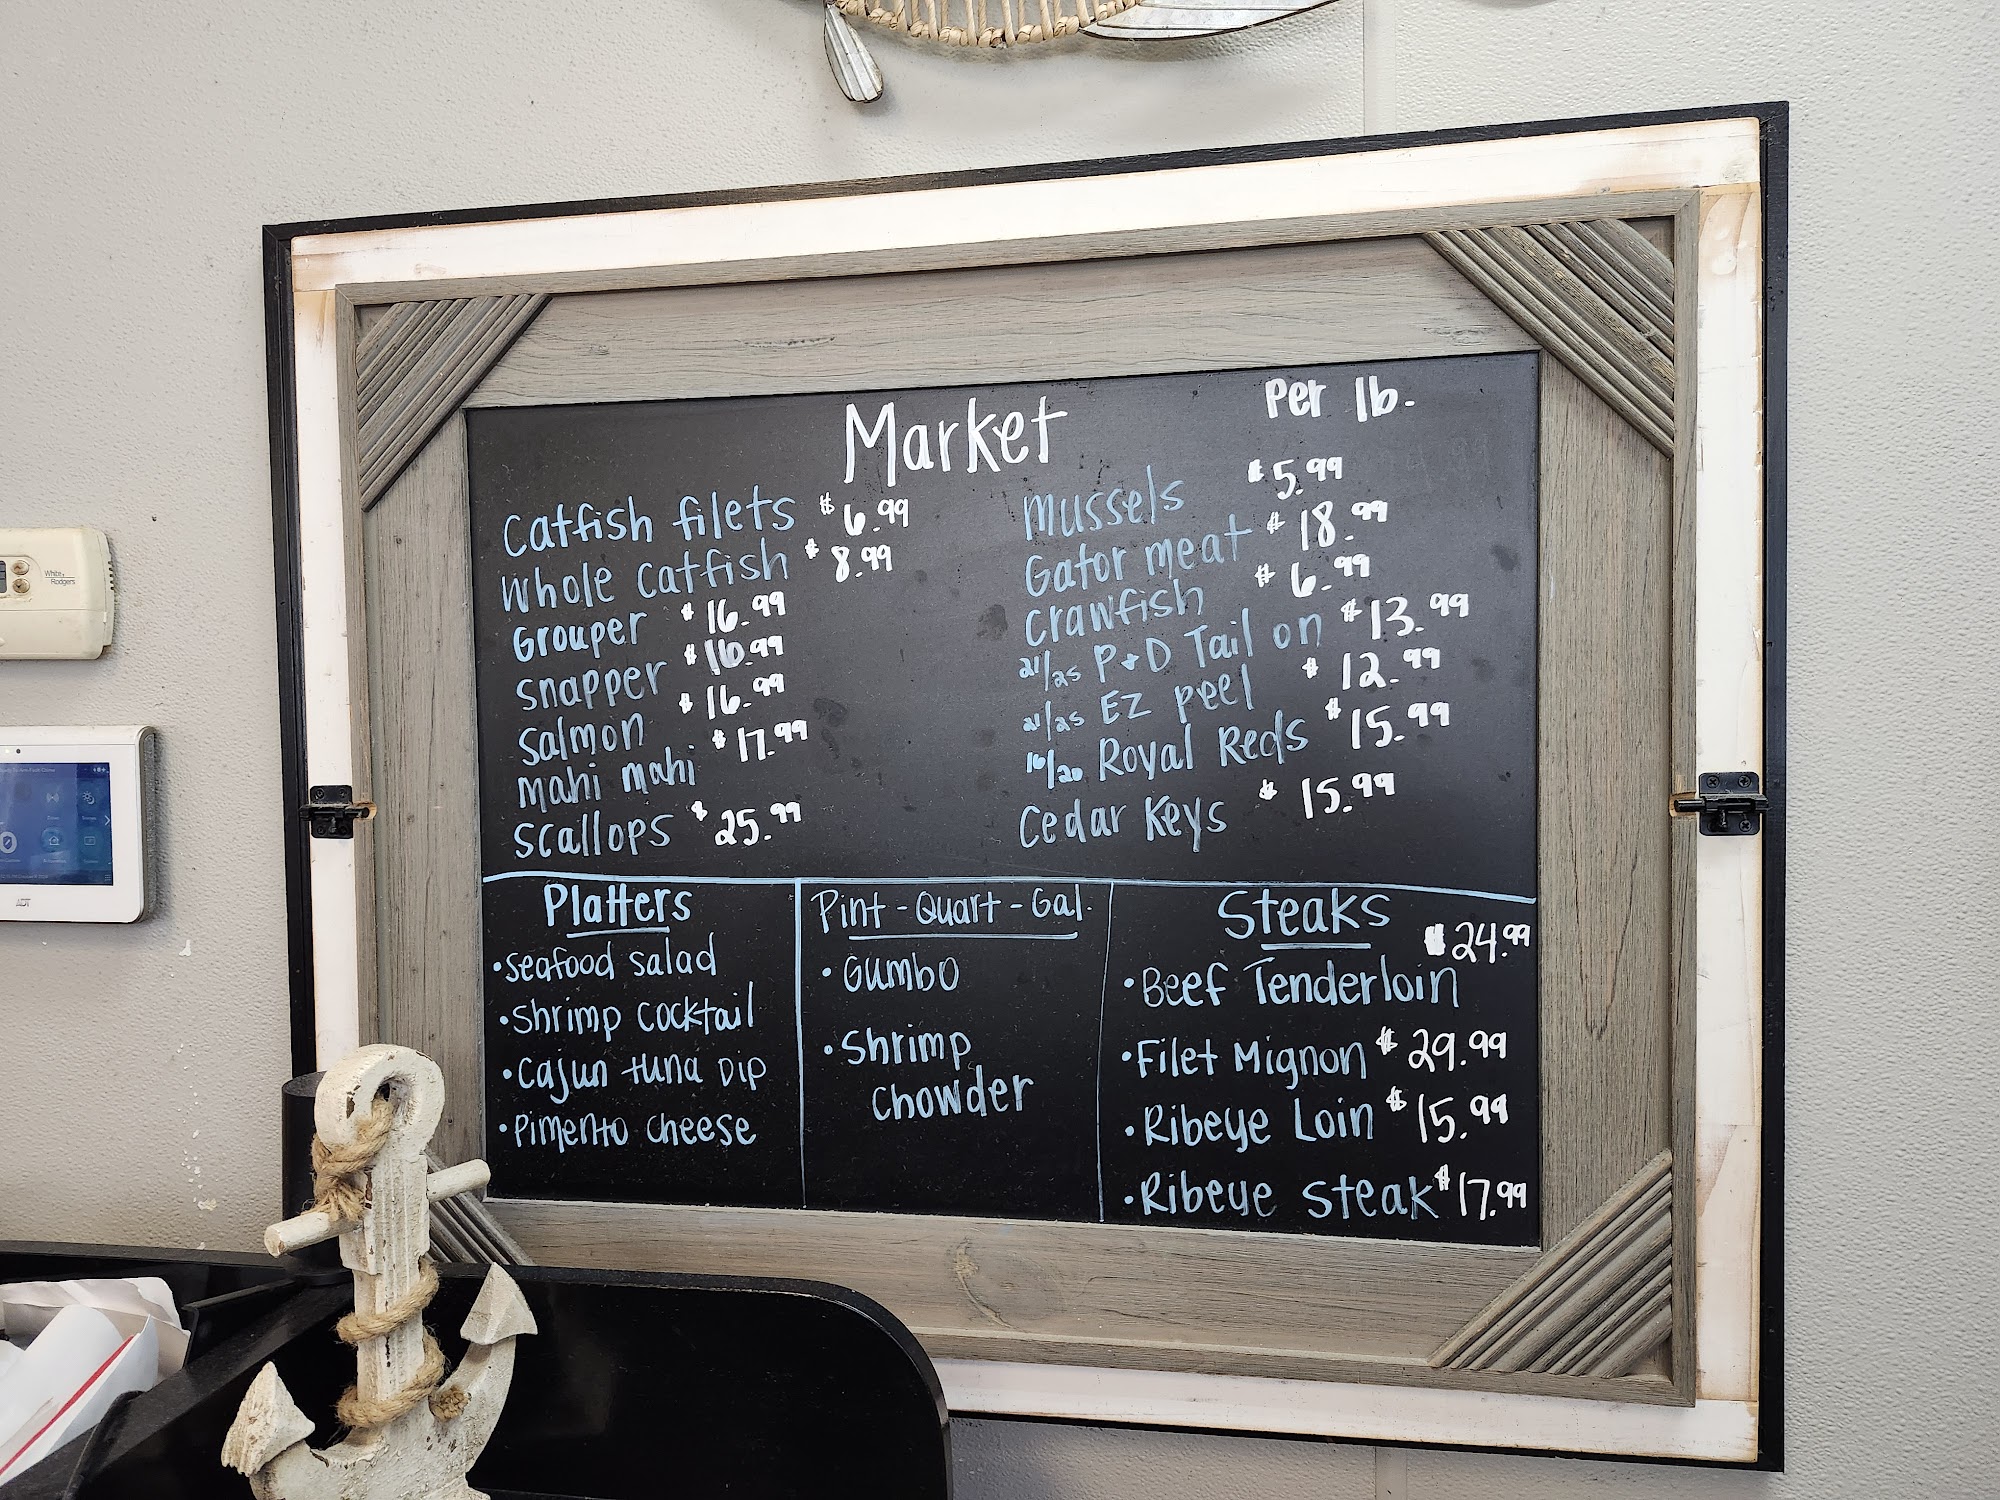 Market
Per lb.
Catfish filets $6.99
Whole Catfish $8.99
Grouper $16.99
Snapper $16.99
Salmon $16.99
Mahi mahi $17.99
Scallops $25.99
Mussels $5.99
Gator meat $18.99
Crawfish $6.99
21/25 P+D Tail on $13.99
21/25 EZ peel $12.99
16/20 Royal Reds $15.99
Cedar Keys $15.99
Platters
•Seafood salad
•Shrimp cocktail
•Cajun tuna Dip
•Pimento cheese
Pint-Quart-Gal.
•Gumbo
•Shrimp
Chowder
Steaks
$24.99
•Beef Tenderloin
•Filet Mignon $29.99
•Ribeye Loin $15.99
•Ribeye Steak $17.99
White
Rodgers
ADT